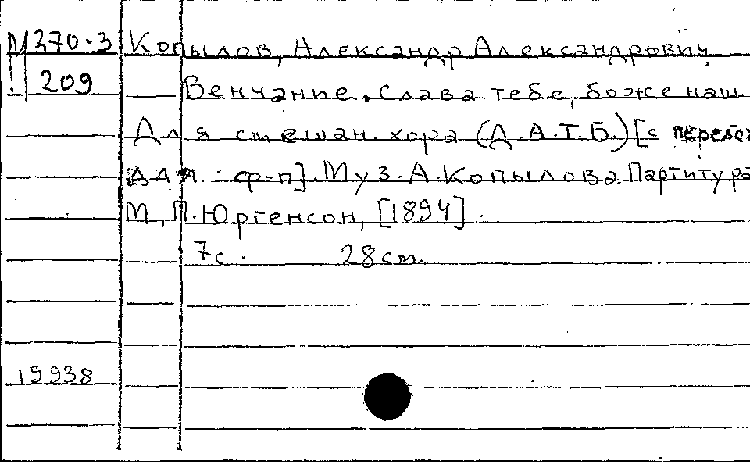 М270.3 Копылов, Александр Александрович
209 Венчание. Слава тебе, боже наш
Для смешан. хора (Д.А.Т.Б.) [с перелож
для ф-п]. Муз. А. Копылова. Партитура
М, П. Юргенсон, [1894].
7с. 28 см.
15938